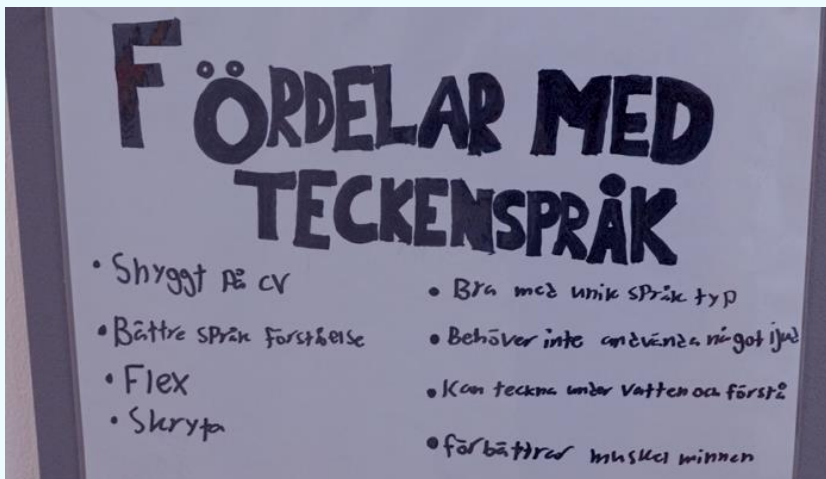 FÖRDELAR MED
TECKENSPRÅK
• Snyggt på CV
• Bättre språk förståelse
• Flex
• Skryta
• Bra med unik språk typ
• Behöver inte andvända något ljud
• Kan teckna under vatten och förstå
• förbättrar muskel minnen